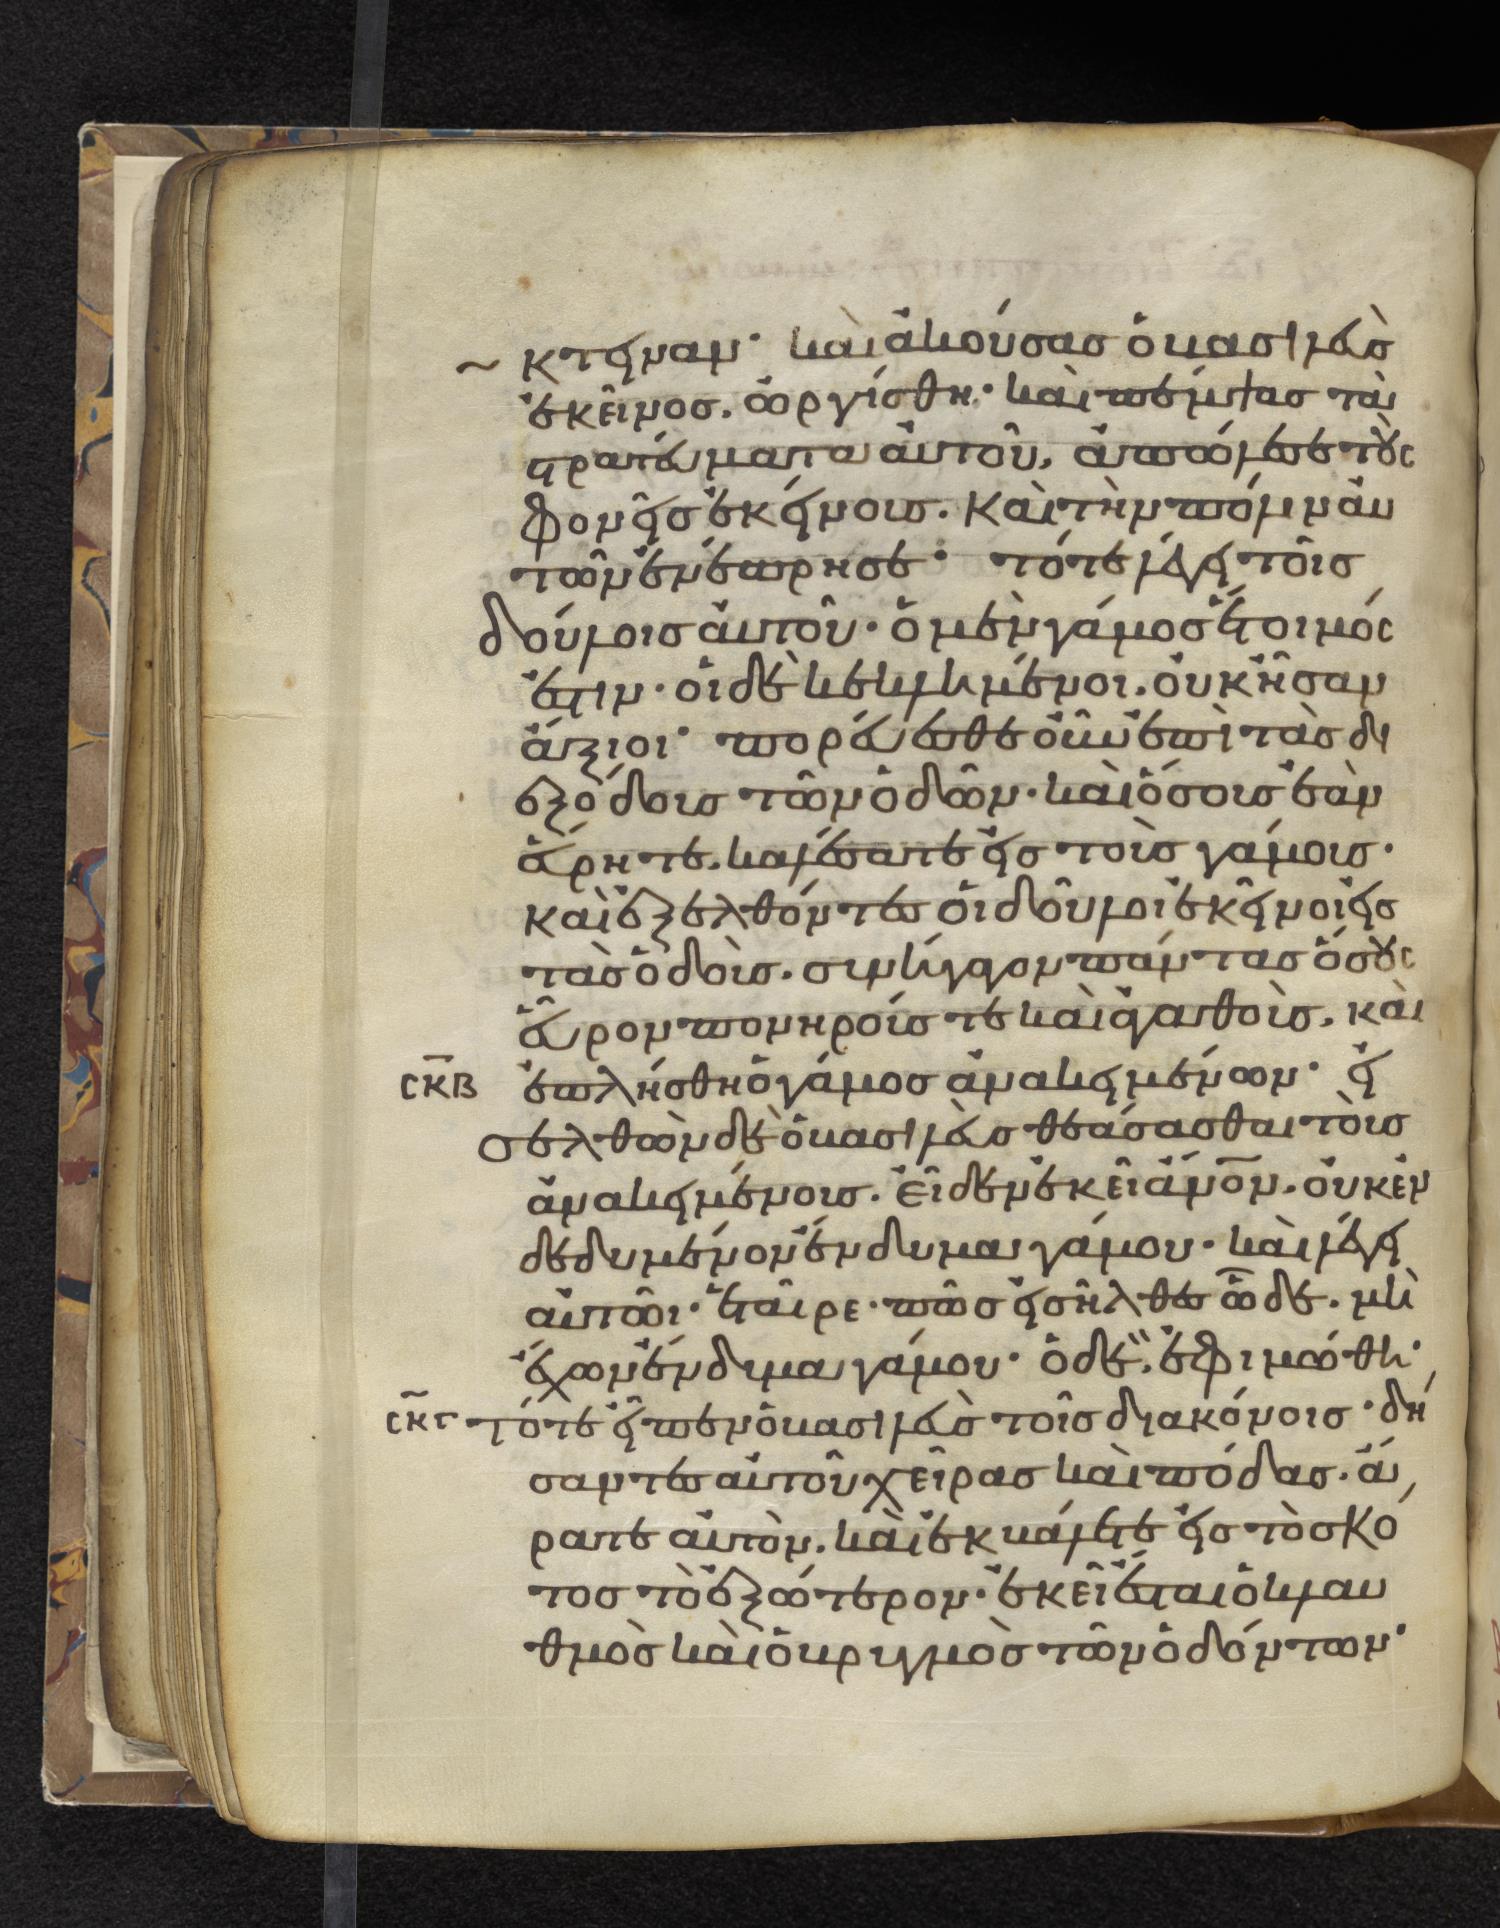 ~ κτειναν· καὶ ἀκούσας ὁ βασιλεὺς
ἐκεῖνος. ὠργίσθη· καὶ πέμψας τὰ
στρατεύματα αὐτοῦ, ἀπώλεσε τοὺς
φονεῖς ἐκείνους. καὶ τὴν πόλιν αὐ
τῶν ἐνέπρησε· τότε λέγει τοῖς
δούλοις αὐτοῦ· ὁ μὲν γάμος ἕτοιμός
ἐστιν· οἱ δὲ κεκλημένοι. οὐκ ἦσαν
ἄξιοι· πορεύεσθε οὖν ἐπὶ τὰς δι
εξόδους τῶν ὁδῶν· καὶ ὅσους ἐὰν
εὕρητε. καλέσατε εἰς τοὺς γάμους·
καὶ ἐξελθόντες οἱ δοῦλοι ἐκεῖνοι εἰς
τὰς ὁδοὺς. συνήγαγον πάντας ὅσους
εὗρον πονηρούς τε καὶ ἀγαθοὺς. καὶ
ςκβ ἐπλήσθη ὁ γάμος ἀνακειμένων· εἰ
σελθὼν δὲ ὁ βασιλεὺς θεάσασθαι τοὺς
ἀνακειμένους. εἶδεν ἐκεῖ ἄνον. οὐκ ἐν
δεδυμένον ἔνδυμα γάμου· καὶ λέγει
αὐτῶι· ἑταῖρε· πῶς εἰσῆλθες ὧδε. μὴ
ἔχων ἔνδυμα γάμου· ὁ δὲ. ἐφιμώθη·
ςκγ τότε εἶπεν ὁ βασιλεὺς τοῖς διακόνοις· δή
σαντες αὐτοῦ χεῖρας καὶ πόδας. ἄ
ρατε αὐτὸν. καὶ ἐκβάλετε εἰς τὸ σκό
τος τὸ ἐξώτερον· ἐκεῖ ἔσται ὁ κλαυ
θμὸς καὶ ὁ βρυγμὸς τῶν ὀδόντων·